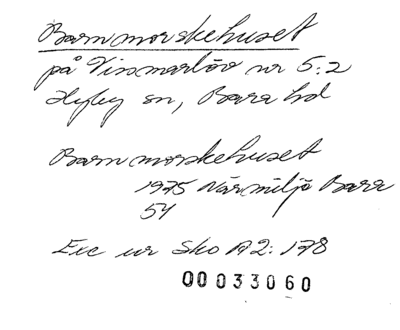 Barnmorskehuset
på Vismarlöv nr 5:2
Hyby sn, Bara hd
Barnmorskehuset
1975 Närmiljö Bara
54
Exc ur Sko A2:178
00033060